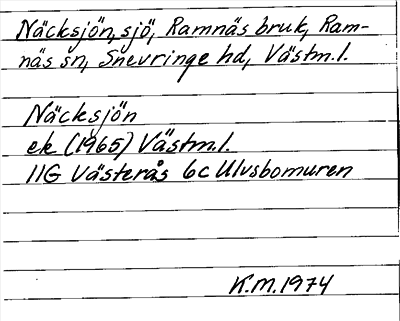 Näcksjön, sjö, Ramnäs bruk, Ram-
näs sn, Snevringe hd, Västm.l.
Näcksjön
ek (1965) Västm.l.
11G Västerås 6c Ulvsbomuren
K.M. 1974